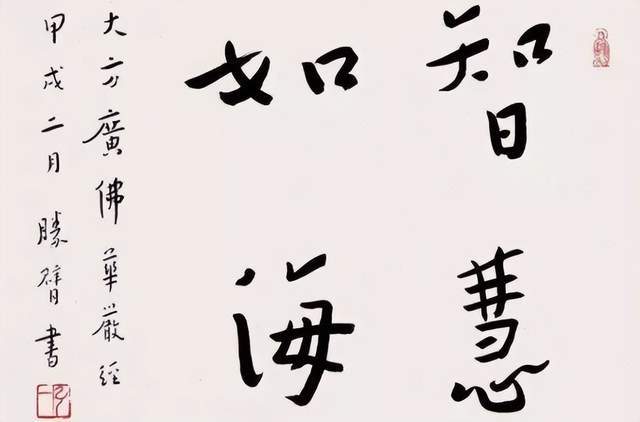 智慧
如海
大方廣佛華嚴經
甲戌二月 勝臂書